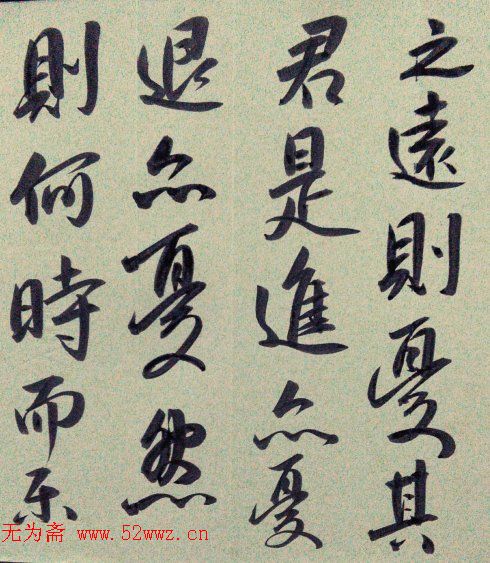 之遠則憂其
君是進亦憂
退亦憂然
則何時而樂
无为斋 www.52wwz.cn